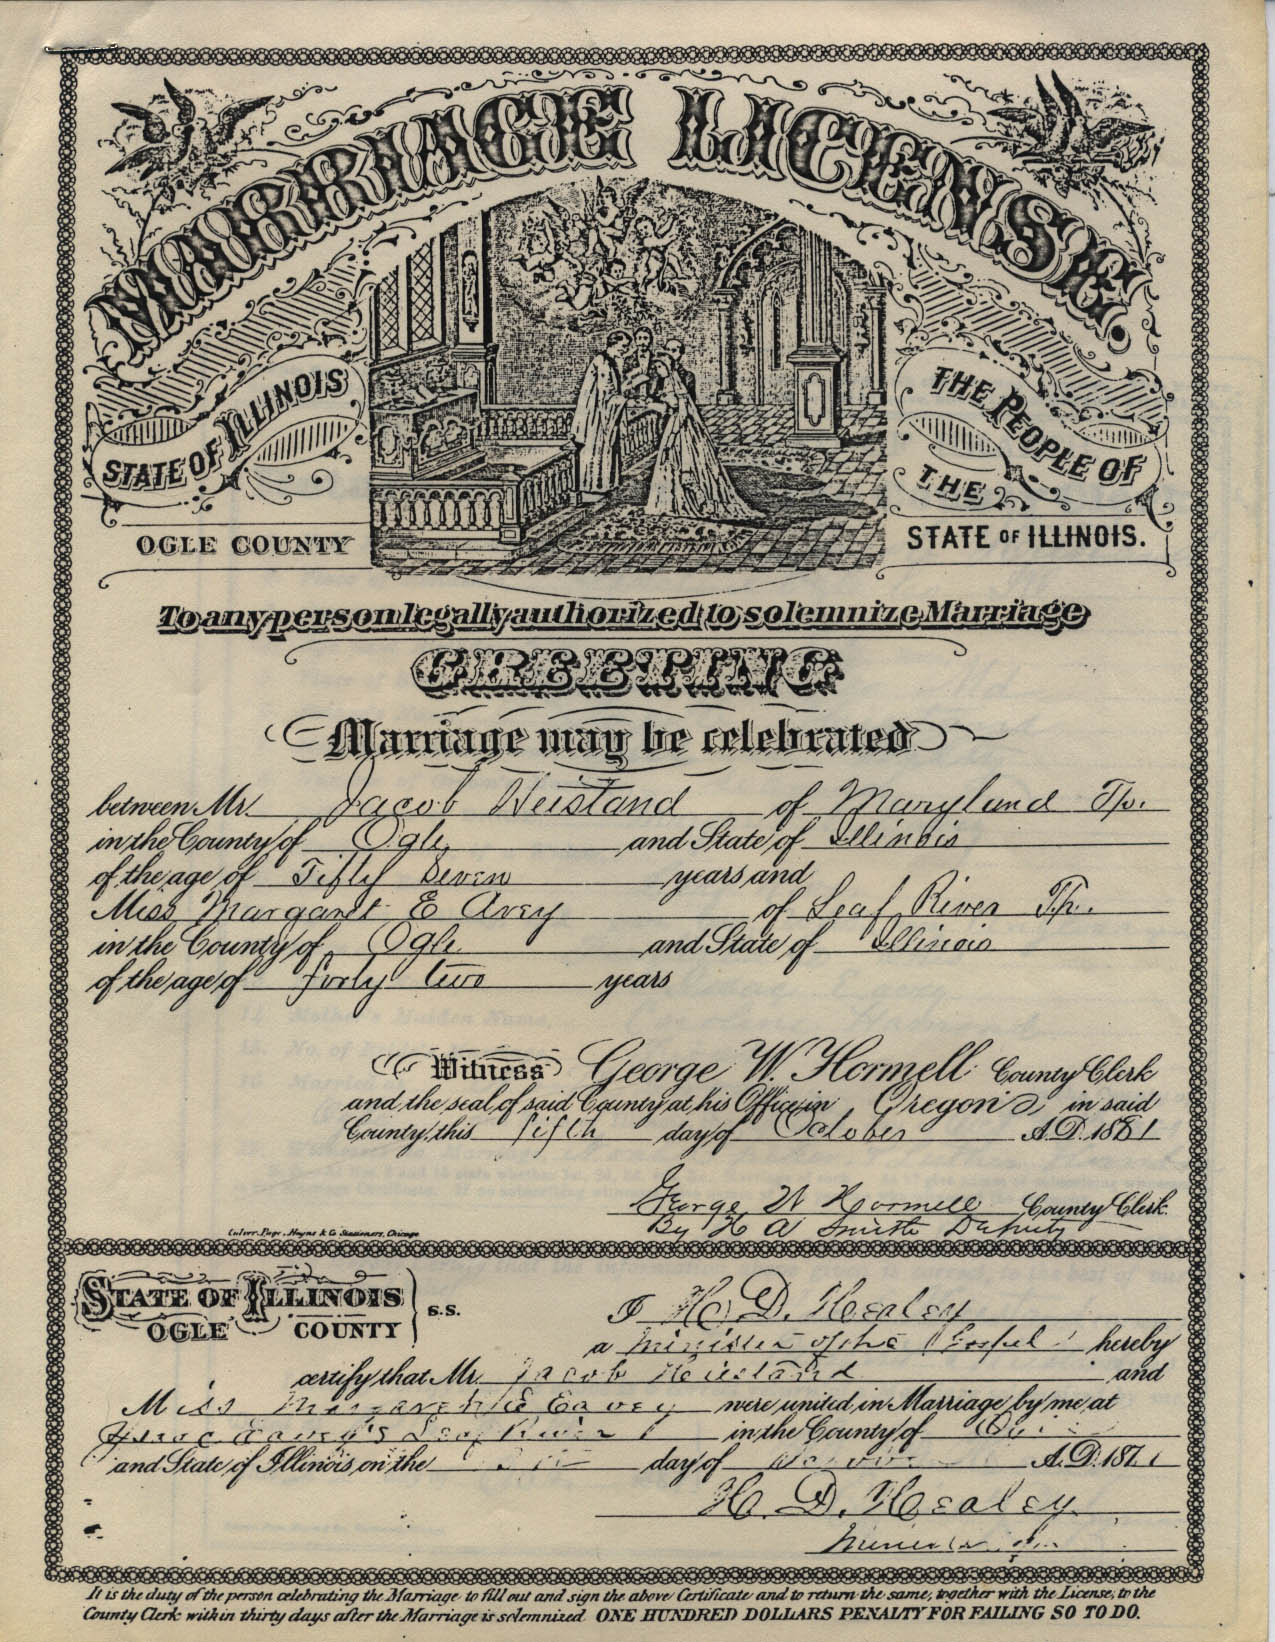 MARRIAGE LICENSE.
STATE OF ILLINOIS
OGLE COUNTY
THE PEOPLE OF
THE
STATE OF ILLINOIS.
To any person legally authorized to solemnize Marriage
GREETING
Marriage may be celebrated
between Mr. Jacob Heistand of Maryland Tp.
in the County of Ogle and State of Illinois
of the age of Fifty Seven years and
Miss Margaret E Avey of Leaf River Tp.
in the County of Ogle and State of Illinois
of the age of forty two years
Witness George W. Hormell County Clerk
and the seal of said County at his Office in Oregon in said
County this fifth day of October A.D. 1881
George W Hormell County Clerk.
By H A Smith Deputy
Culver, Page, Hoyne & Co Stationers, Chicago
STATE OF ILLINOIS
OGLE COUNTY
S.S.
I H. D. Healey
a minister of the Gospel hereby
certify that Mr. Jacob Heistand and
Miss Margaret E Eavey were united in Marriage by me at
Eavey's Leaf River in the County of
and State of Illinois on the day of A.D. 187
H. D. Healey
It is the duty of the person celebrating the Marriage to fill out and sign the above Certificate and to return the same, together with the License, to the
County Clerk within thirty days after the Marriage is solemnized. ONE HUNDRED DOLLARS PENALTY FOR FAILING SO TO DO.